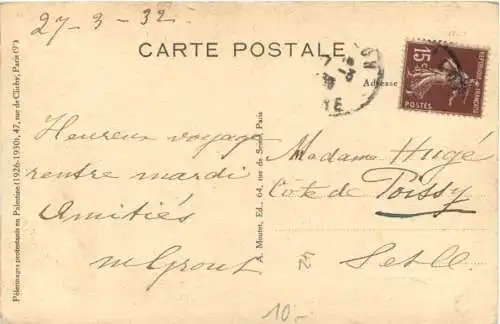 27-3-32
CARTE POSTALE
Adresse
15c
REPUBLIQUE FRANÇAISE
POSTES
Heureux voyage
rentre mardi
Amitiés
Madame Hugé
Côte de Poissy
S et O
42
10.-
A. Moutet, Ed., 64, rue de Seine, Paris
Pèlerinages protestants en Palestine (1926-1930), 47, rue de Clichy, Paris (9e)